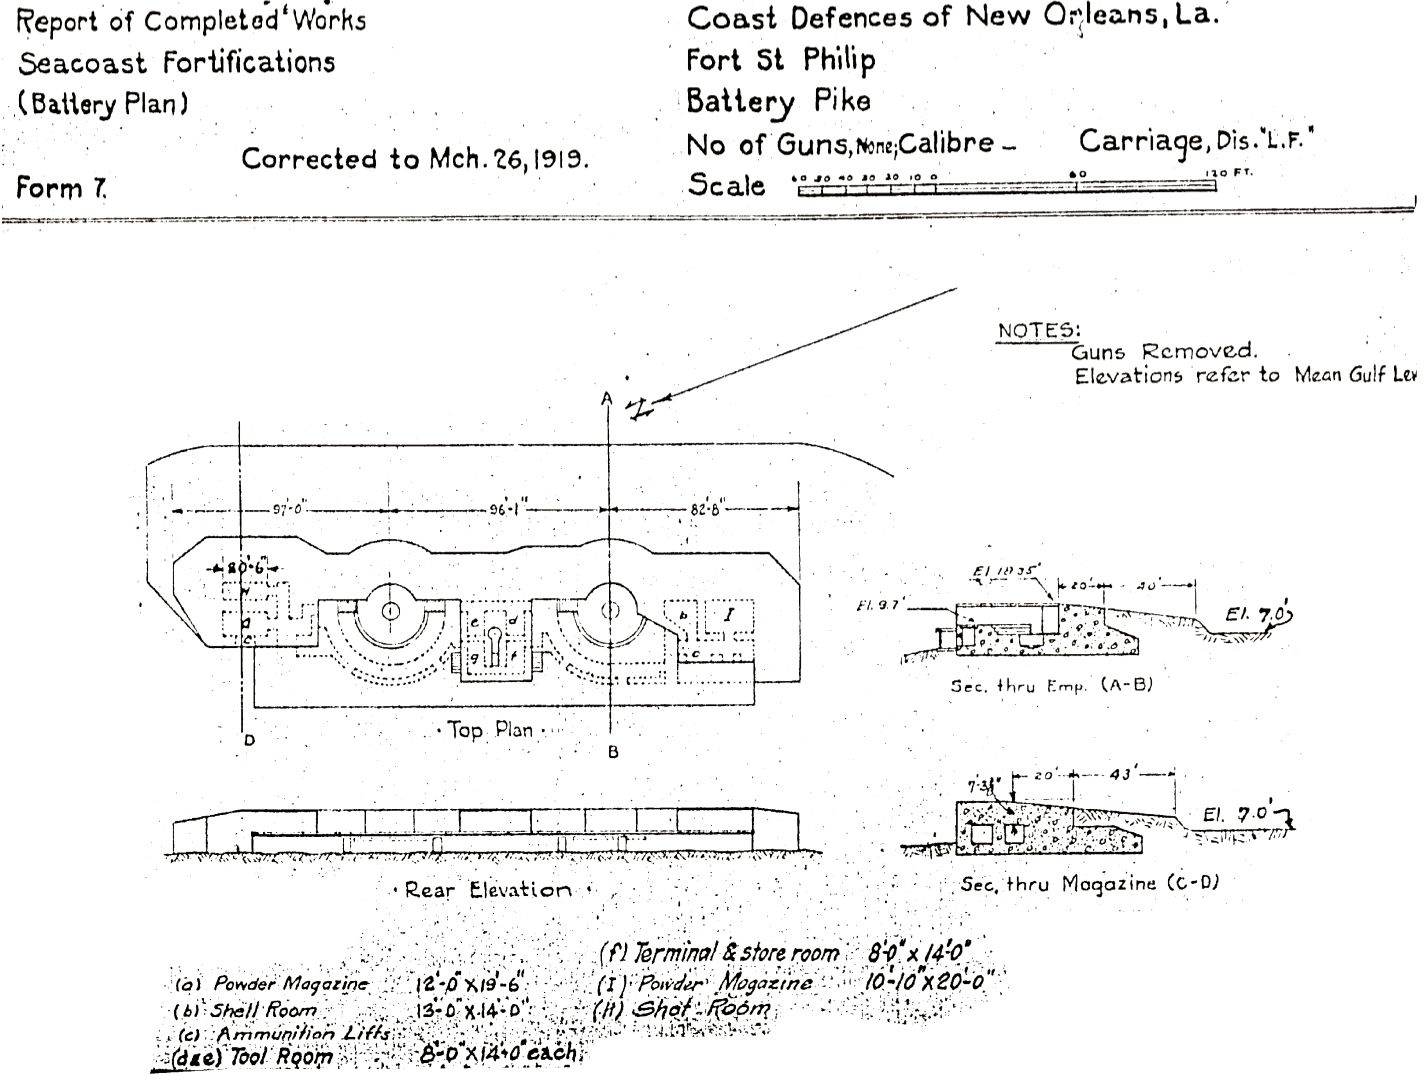 Report of Completed Works
Seacoast Fortifications
(Battery Plan)
Corrected to Mch. 26, 1919.
Form 7.
Coast Defences of New Orleans, La.
Fort St Philip
Battery Pike
No of Guns, None; Calibre – Carriage, Dis. "L.F."
Scale 60 50 40 30 20 10 0 60 120 FT.
NOTES:
Guns Removed.
Elevations refer to Mean Gulf Lev
A
97'-0" 96'-1" 82'-8"
H
a
c
e d
g f
b I
c
D
B
· Top Plan ·
El. 9.7' 20' El. 7.0'
Sec. thru Emp. (A-B)
20' 43'
El. 7.0'
Sec. thru Magazine (C-D)
· Rear Elevation ·
(a) Powder Magazine 12'-0" X 19'-6"
(b) Shell Room 13'-0" X 14'-0"
(c) Ammunition Lifts
(d&e) Tool Room 8'-0" X 14'-0" each
(f) Terminal & store room 8'-0" x 14'-0"
(I) Powder Magazine 10'-10" X 20'-0"
(H) Shot Room